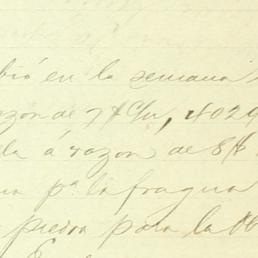 bió en la semana
razón de 7 # C/u, 4029
la á razon de 8 #
na pa. la fragua
piedra para la